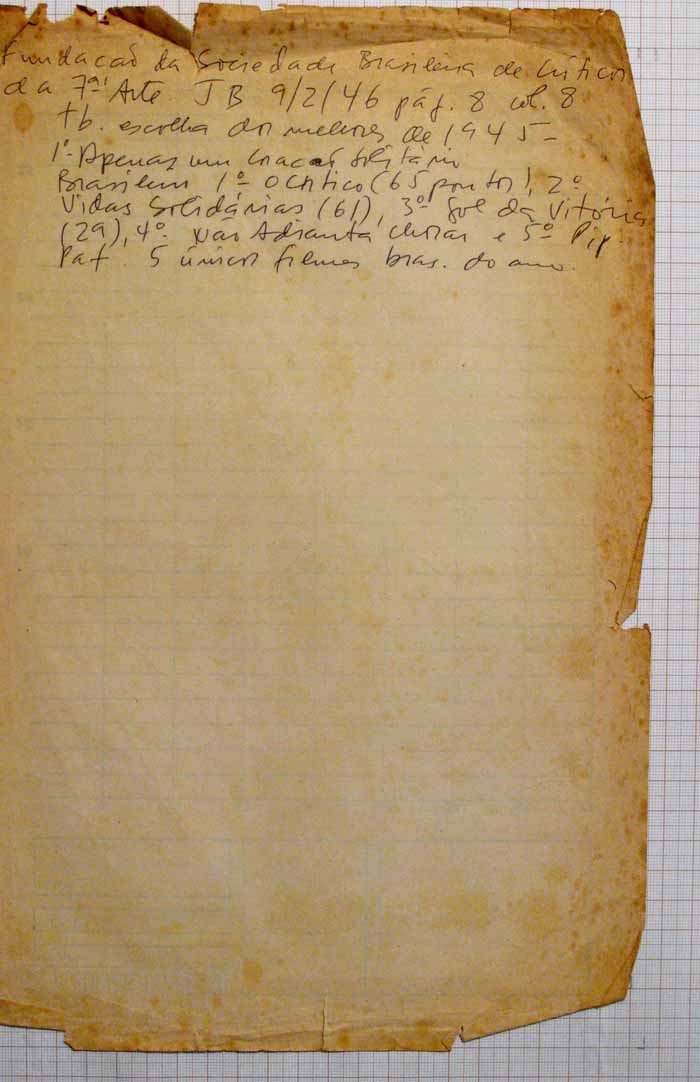 Fundação da Sociedade Brasileira de Críticos
da 7ª Arte JB 9/2/46 pág. 8 col. 8
tb. escolha dos melhores de 1945 –
1º Apenas um Coração Solitário
Brasileiros 1º O Cortiço (65 pontos), 2º
Vidas Solidárias (61), 3º Gol da Vitória
(29), 4º Não Adianta Chorar e 5º Pif
Paf. 5 únicos filmes bras. do ano.